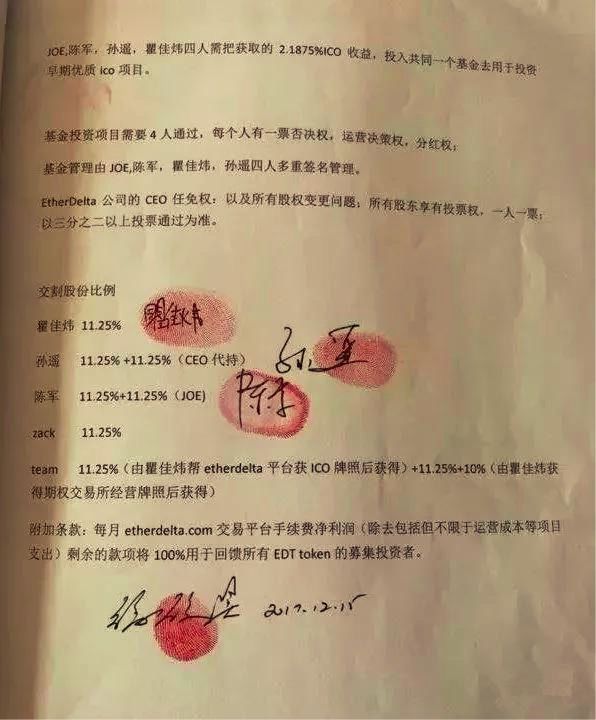 JOE,陈军，孙遥，瞿佳炜四人需把获取的 2.1875%ICO 收益，投入共同一个基金去用于投资
早期优质 ico 项目。
基金投资项目需要 4 人通过，每个人有一票否决权，运营决策权，分红权；
基金管理由 JOE,陈军，瞿佳炜，孙遥四人多重签名管理。
EtherDelta 公司的 CEO 任免权：以及所有股权变更问题；所有股东享有投票权，一人一票；
以三分之二以上投票通过为准。
交割股份比例
瞿佳炜 11.25% 瞿佳炜
孙遥 11.25% +11.25%（CEO 代持） 孙遥
陈军 11.25%+11.25%（JOE） 陈军
zack 11.25%
team 11.25%（由瞿佳炜帮 etherdelta 平台获 ICO 牌照后获得）+11.25%+10%（由瞿佳炜获
得期权交易所经营牌照后获得）
附加条款：每月 etherdelta.com 交易平台手续费净利润（除去包括但不限于运营成本等项目
支出）剩余的款项将 100%用于回馈所有 EDT token 的募集投资者。
2017.12.15